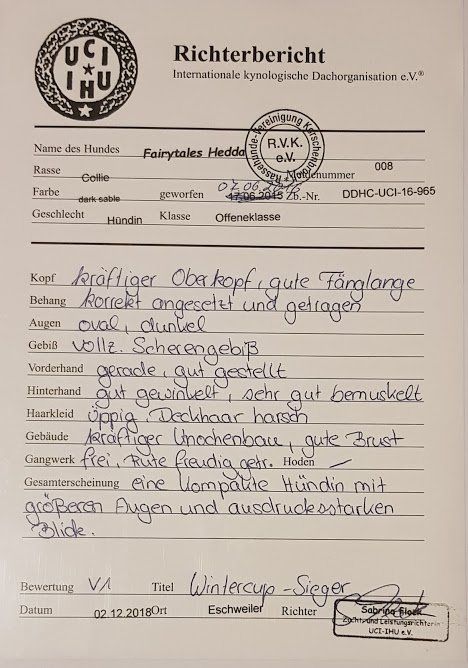 UCI
IHU
Richterbericht
Internationale kynologische Dachorganisation e.V.®
Rassehunde-Vereinigung Kerschenbroich
R.V.K.
e.V.
Name des Hundes Fairytales Hedda
Rasse Collie Meldenummer 008
Farbe dark sable geworfen 17.06.2015 07.06.2016 Zb.-Nr. DDHC-UCI-16-965
Geschlecht Hündin Klasse Offeneklasse
Kopf kräftiger Oberkopf, gute Fänglange
Behang korrekt angesetzt und getragen
Augen oval, dunkel
Gebiß vollz. Scherengebiß
Vorderhand gerade, gut gestellt
Hinterhand gut gewinkelt, sehr gut bemuskelt
Haarkleid üppig, Deckhaar harsch
Gebäude kräftiger Knochenbau, gute Brust
Gangwerk frei, Rute freudig getr. Hoden –
Gesamterscheinung eine kompakte Hündin mit
größeren Augen und ausdrucksstarken
Blick.
Bewertung V1 Titel Wintercup-Sieger
Datum 02.12.2018 Ort Eschweiler Richter
Sabrina
Zucht- und Leistungsrichterin
UCI-IHU e.V.